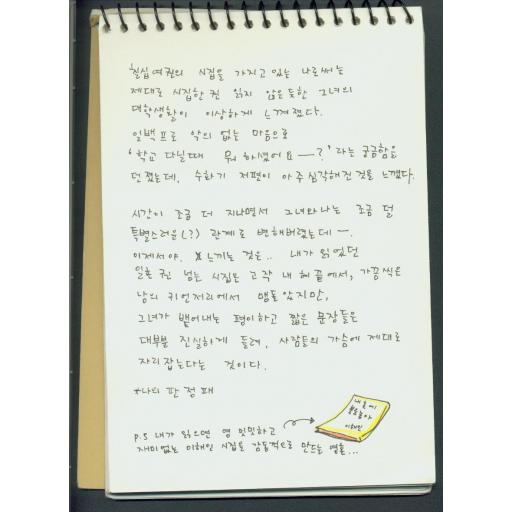 칠십여권의 시집을 가지고 있는 나로써는
제대로 시집한 권 읽지 않은듯한 그녀의
대학생활이 이상하게 느껴졌다.
일백프로 악의 없는 마음으로
'학교 다닐때 뭐 하셨어요—?' 라는 궁금함을
던졌는데, 수화기 저편이 아주 심각해진 것을 느꼈다.
시간이 조금 더 지나면서 그녀와나는 조금 덜
특별스러운(?) 관계로 변해버렸는데—.
이제서야. 느끼는 것은.. 내가 읽었던
일흔 권 넘는 시집는 고작 내 혀끝에서, 가끔씩은
남의 귀언저리에서 맴돌았지만,
그녀가 뱉어내는 평이하고 짧은 문장들은
대부분 진실하게 들려, 사람들의 가슴에 제대로
자리잡는다는 것이다.
*나의 판정패
내 혼에
불을놓아
이해인
p.s 내가 읽으면 영 밋밋하고
재미없는 이해인 시집을 감동적으로 만드는 영혼...